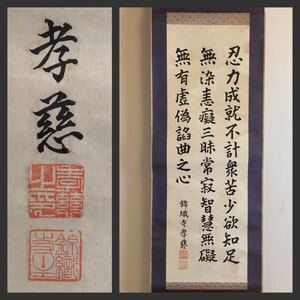 孝慈
忍力成就不計衆苦少欲知足
無染恚癡三昧常寂智慧無礙
無有虚偽諂曲之心
錦織寺孝慈